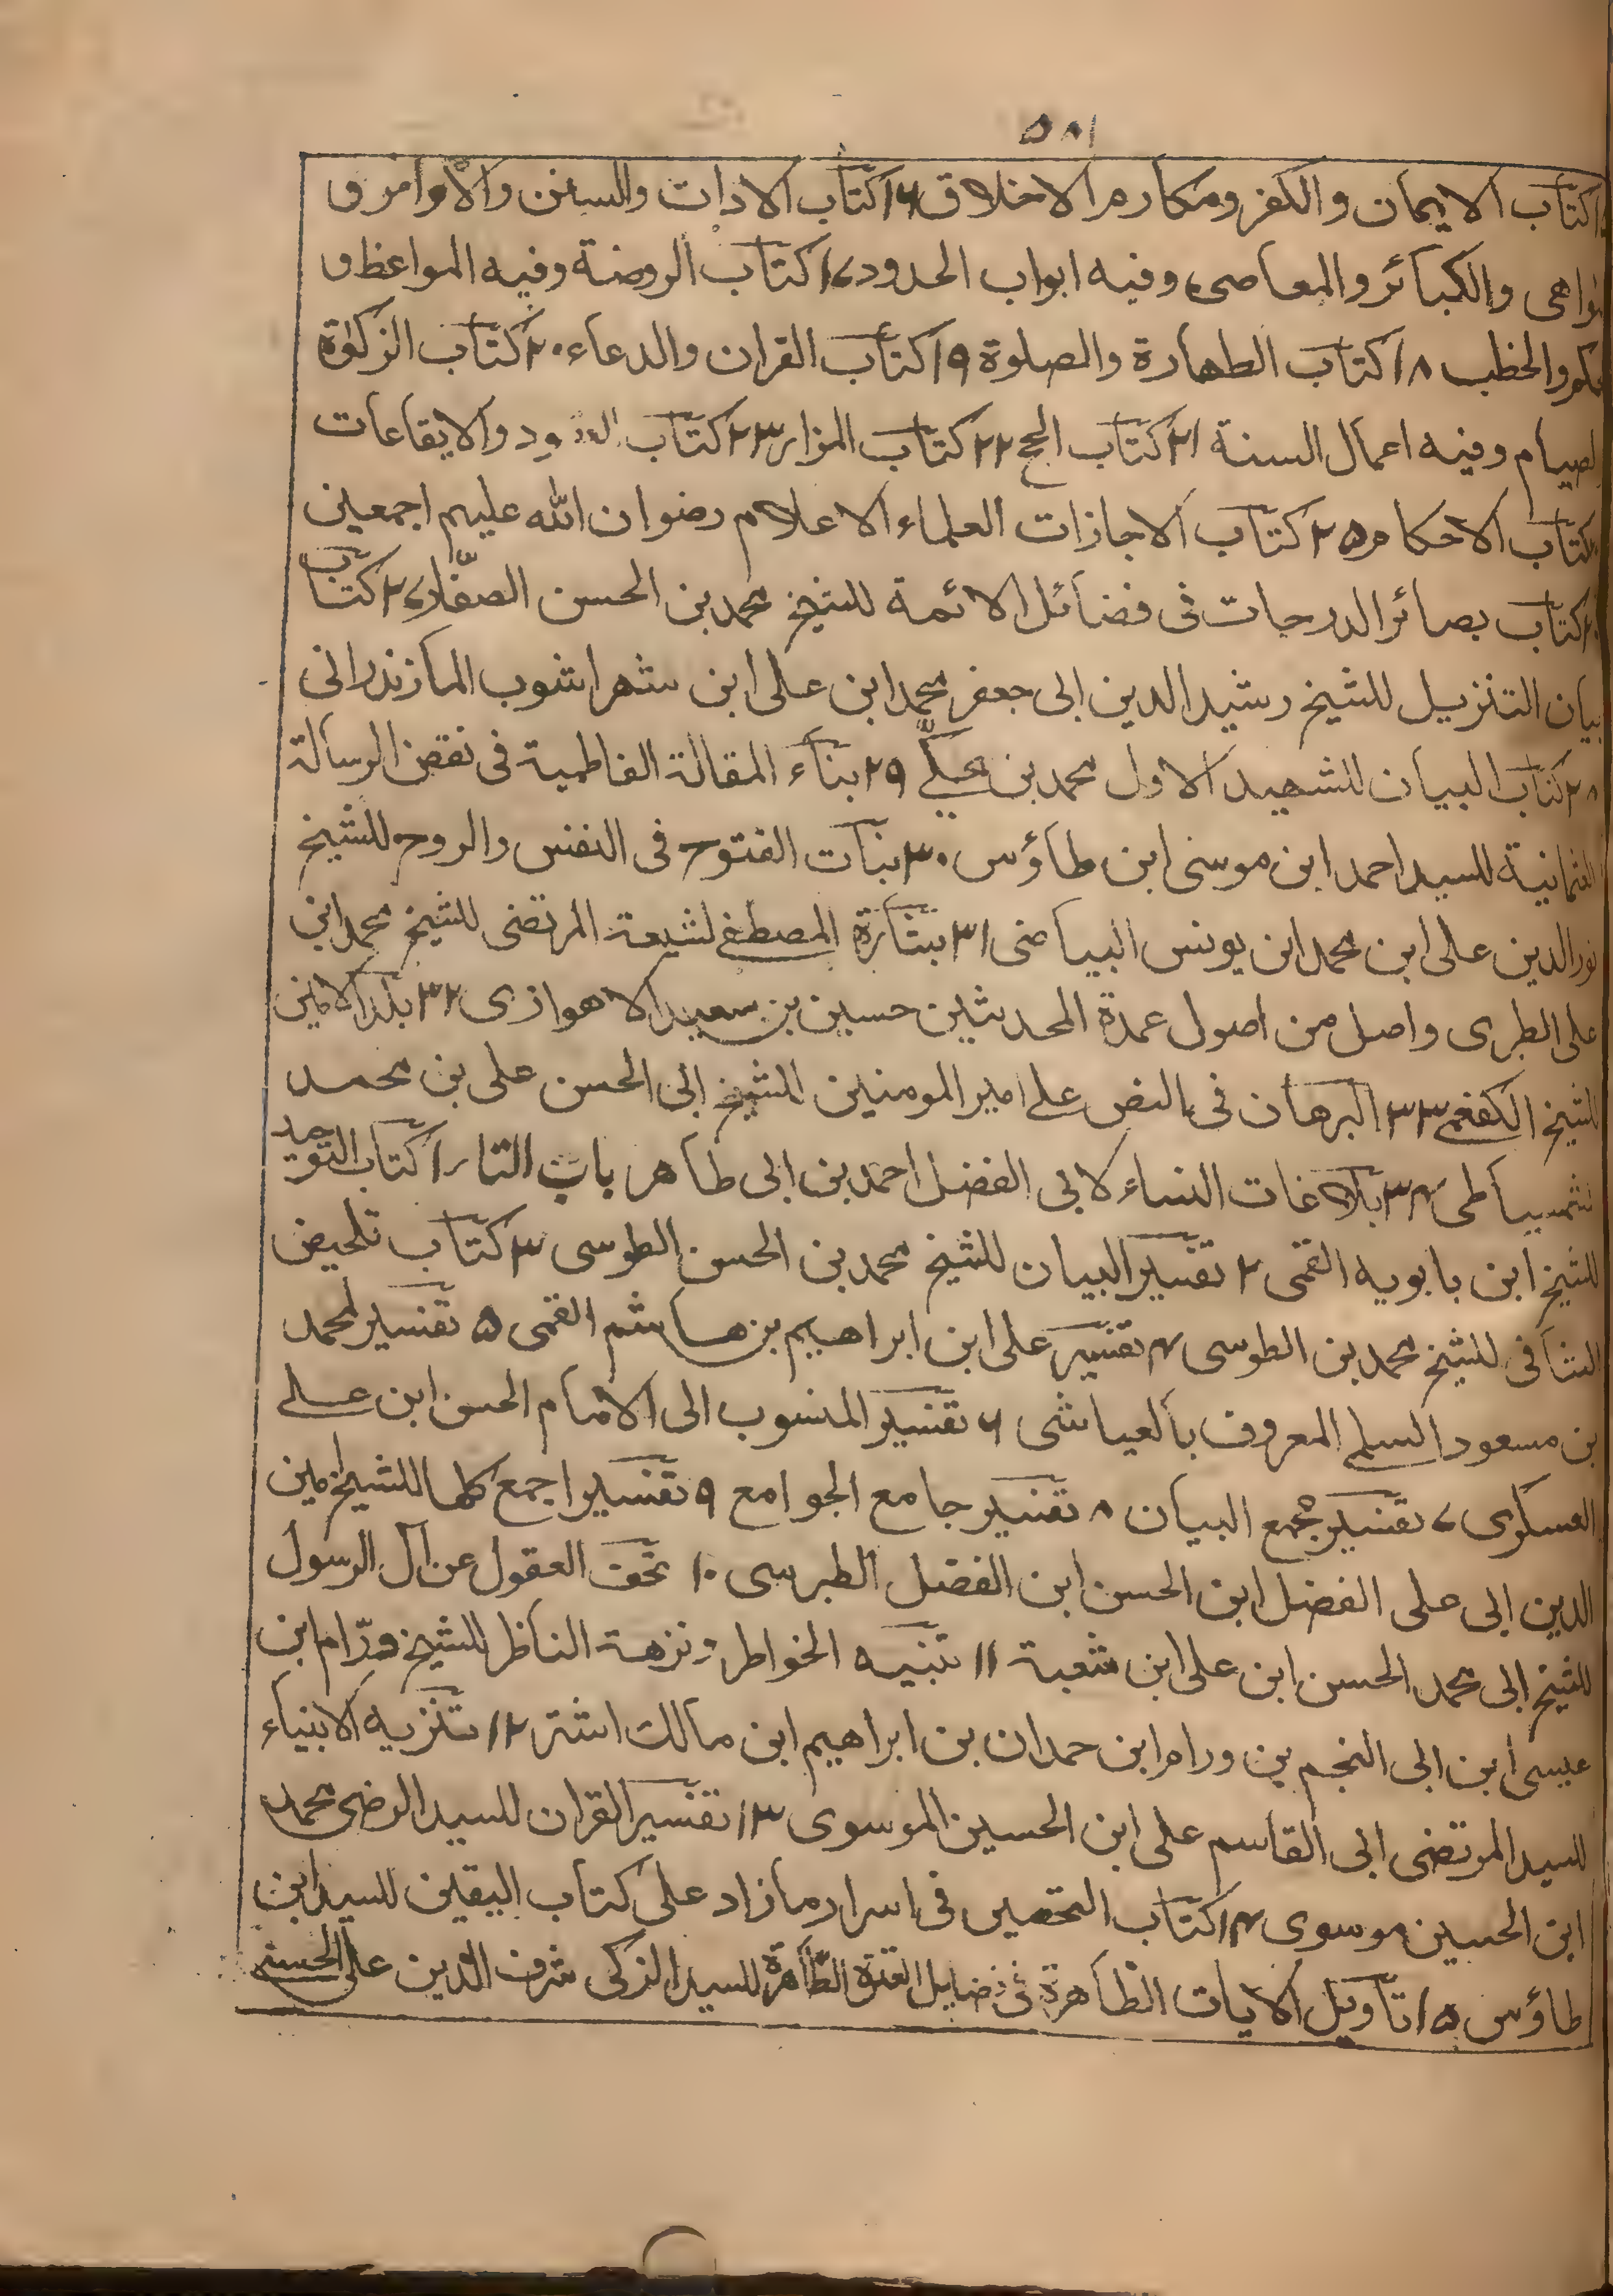 ٥٨١
كتاب الايمان والكفر ومكارم الاخلاق ١٦ كتاب الاداب والسنن والاوامر و
نواهى والكبائر والمعاصى وفيه ابواب الحدود ١٧ كتاب الروضة وفيه المواعظ و
كم والخطب ١٨ كتاب الطهارة والصلوة ١٩ كتاب القران والدعاء ٢٠ كتاب الزكوة
لصيام وفيه اعمال السنة ٢١ كتاب الحج ٢٢ كتاب المزار ٢٣ كتاب العقود والايقاعات
كتاب الاحكام ٢٥ كتاب الاجازات العلماء الاعلام رضوان الله عليهم اجمعين
كتاب بصائر الدرجات فى فضائل الائمة للشيخ محمد بن الحسن الصفّار ٢٧ كتاب
بيان التنزيل للشيخ رشيد الدين ابى جعفر محمد ابن على ابن شهر اشوب المازندرانى
٢٨ كتاب البيان للشهيد الاول محمد بن مكّى ٢٩ بناء المقالة الفاطمية فى نقض الرسالة
العثمانية للسيد احمد ابن موسى ابن طاؤس ٣٠ بنات الفتوح فى النفس والروح للشيخ
نور الدين على ابن محمد ابن يونس البياضى ٣١ بشارة المصطفى لشيعة المرتضى للشيخ محمد ابن
على الطبرى واصل من اصول عمدة المحدثين حسين بن سعيد الاهوازى ٣٢ بلد الامين
للشيخ الكفعمى ٣٣ البرهان فى النص على امير المومنين للشيخ ابى الحسن على بن محمد
شمسياطى ٣٤ بلاغات النساء لابى الفضل احمد بن ابى طاهر باب التاء ١ كتاب التوحيد
للشيخ ابن بابويه القمى ٢ تفسير البيان للشيخ محمد بن الحسن الطوسى ٣ كتاب تلخيص
الشافى للشيخ محمد بن الطوسى ٤ تفسير على ابن ابراهيم بن هاشم القمى ٥ تفسير لمحمد
بن مسعود السلمى المعروف بالعياشى ٦ تفسير المنسوب الى الامام الحسن ابن على
العسكرى ٧ تفسير مجمع البيان ٨ تفسير جامع الجوامع ٩ تفسير اجمع كلها للشيخ امين
الدين ابى على الفضل ابن الحسن ابن الفضل الطبرسى ١٠ تحف العقول عن آل الرسول
للشيخ ابى محمد الحسن ابن على ابن شعبة ١١ تنبيه الخواطر ونزهة الناظر للشيخ ورّام ابن
عيسى ابن ابى النجم بن ورام ابن حمدان بن ابراهيم ابن مالك اشتر ١٢ تنزيه الانبياء
للسيد المرتضى ابى القاسم على ابن الحسين الموسوى ١٣ تفسير القران للسيد الرضى محمد
ابن الحسين موسوى ١٤ كتاب التحصين فى اسرار ما زاد على كتاب اليقين للسيد ابن
طاؤس ١٥ تاويل الايات الظاهرة فى فضايل العترة الطاهرة للسيد الزكى شرف الدين على الحسينى